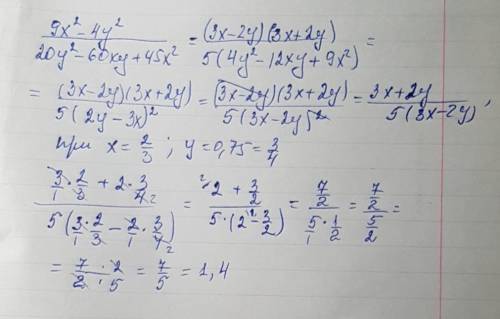 (9x² - 4y²)/(20y² - 60xy + 45x²) = ((3x-2y)(3x+2y))/(5(4y² - 12xy + 9x²)) =
= ((3x-2y)(3x+2y))/(5(2y-3x)²) = ((3x-2y)(3x+2y))/(5(3x-2y)²) = (3x+2y)/(5(3x-2y)),
при x = 2/3 ; y = 0,75 = 3/4
(3/1 · 2/3 + 2 · 3/4)/(5(3/1 · 2/3 - 2/1 · 3/4)) = (2 + 3/2)/(5·(2 - 3/2)) = (7/2)/(5/1 · 1/2) = (7/2)/(5/2) =
= (7 · 2)/(2 · 5) = 7/5 = 1,4